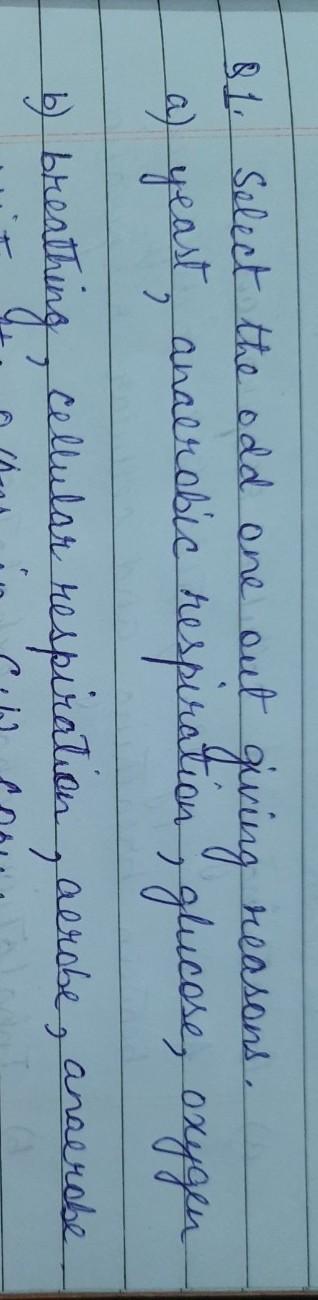 Q1. Select the odd one out giving reasons.
a) yeast, anaerobic respiration, glucose, oxygen
b) breathing, cellular respiration, aerobe, anaerobe